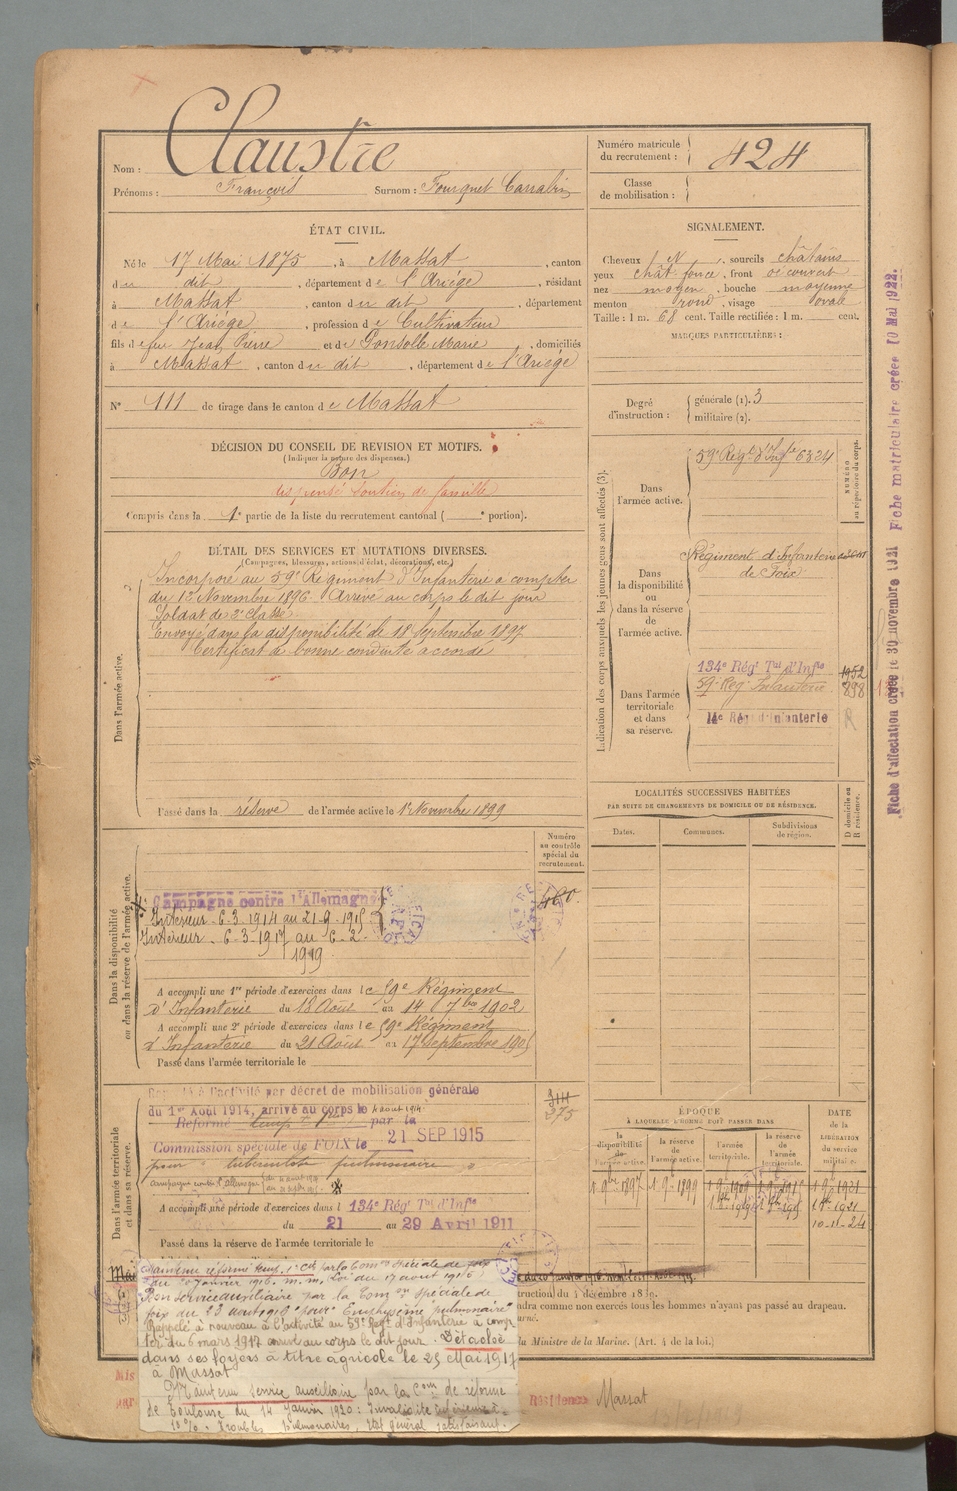 Nom : Claustre
Prénoms : François Surnom : Fourquet Carralin
Numéro matricule du recrutement : 424
Classe de mobilisation :
ÉTAT CIVIL.
Né le 17 Mai 1875, à Massat, canton
du dit, département de l'Ariége, résidant
à Massat, canton du dit, département
de l'Ariége, profession de Cultivateur
fils de feu Jean Pierre et de Gonsolle Marie, domiciliés
à Massat, canton du dit, département de l'Ariége
N° 111 de tirage dans le canton de Massat
SIGNALEMENT.
Cheveux N, sourcils châtains
yeux chât. foncé, front découvert
nez moyen, bouche moyenne
menton rond, visage ovale
Taille : 1 m. 68 cent. Taille rectifiée : 1 m. cent.
MARQUES PARTICULIÈRES :
Degré d'instruction : générale (1). 3
militaire (2).
DÉCISION DU CONSEIL DE REVISION ET MOTIFS.
(Indiquer la nature des dispenses.)
Bon
dispensé soutien de famille
Compris dans la 1e partie de la liste du recrutement cantonal ( e portion).
DÉTAIL DES SERVICES ET MUTATIONS DIVERSES.
(Campagnes, blessures, actions d'éclat, décorations, etc.)
Dans l'armée active.
Incorporé au 59e Régiment d'Infanterie à compter
du 12 Novembre 1896. Arrivé au corps le dit jour
Soldat de 2e classe
Envoyé dans la disponibilité le 18 Septembre 1897
Certificat de bonne conduite accordé
Passé dans la réserve de l'armée active le 1er Novembre 1899
Indication des corps auxquels les jeunes gens sont affectés (3).
NUMÉRO au répertoire du corps.
Dans l'armée active.
59e Régt d'Infie 6324
Dans la disponibilité ou dans la réserve de l'armée active.
Régiment d'Infanterie
de Foix
Dans l'armée territoriale et dans sa réserve.
134e Régt Tal d'Infie 1952
59e Rég Infanterie 898
14e Rég d'Infanterie
LOCALITÉS SUCCESSIVES HABITÉES
PAR SUITE DE CHANGEMENTS DE DOMICILE OU DE RÉSIDENCE.
D domicile ou R résidence.
Dates. Communes. Subdivisions de région.
Fiche d'affectation créée le 30 novembre 1921 Fiche matriculaire créée 10 Mai 1922.
Dans la disponibilité ou dans la réserve de l'armée active.
Numéro au contrôle spécial du recrutement.
Campagne contre l'Allemagne
Intérieur 6-3-1914 au 21-9-1915
Intérieur 6-3-1917 au 6-2-
1919
A accompli une 1re période d'exercices dans le 59e Régiment
d'Infanterie du 18 Août au 14 7bre 1902
A accompli une 2e période d'exercices dans le 59e Régiment
d'Infanterie du 21 Août au 17 Septembre 1905
Passé dans l'armée territoriale le
Dans l'armée territoriale et dans sa réserve.
Rappelé à l'activité par décret de mobilisation générale
du 1er Août 1914, arrivé au corps le
Réformé par la
Commission spéciale de FOIX le 21 SEP 1915
pour tuberculose pulmonaire
A accompli une période d'exercices dans l 134e Régt Tal d'Infie
du 21 au 29 Avril 1911
Passé dans la réserve de l'armée territoriale le
375
ÉPOQUE
À LAQUELLE L'HOMME DOIT PASSER DANS
la disponibilité de l'armée active. la réserve de l'armée active. l'armée territoriale. la réserve de l'armée territoriale.
DATE de la LIBÉRATION du service militaire.
1 9bre 1897 1 9e 1899 1 9e 1909 1 9e 1915 1 9e 1921
10-11-24
Maintenu réformé temp. par la Comon spéciale de Foix
du janvier 1916. m.m. Loi du 17 août 1915
Bon service auxiliaire par la Comon spéciale de
Foix du 23 août 1916 pour "Emphysème pulmonaire"
Rappelé à nouveau à l'activité au 59e Régt d'Infanterie à comp
ter du 6 mars 1917 arrivé au corps le dit jour. Détaché
dans ses foyers à titre agricole le 25 Mai 1917
à Massat
Maintenu service auxiliaire par la Comon de réforme
de Toulouse du 14 Janvier 1920 : Invalidité inférieure à
10 %. troubles pulmonaires, état général satisfaisant.
ndra comme non exercés tous les hommes n'ayant pas passé au drapeau.
la Ministre de la Marine. (Art. 4 de la loi.)
Résidence Massat